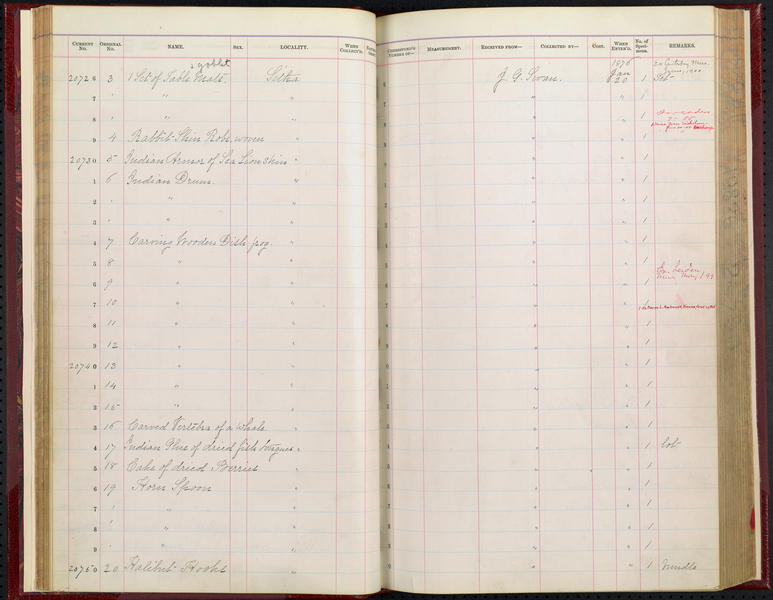 CURRENT NO. ORIGINAL NO. NAME. SEX. LOCALITY. WHEN COLLECT'D. MEASUREMENT. RECEIVED FROM— COLLECTED BY— COST. WHEN ENTER'D. No. of Speci- mens. REMARKS.
goblet 1876
20726 3 1 Set of Table Mats. Sitka J. G. Swan. Jan 20 1 Set
7 " " " " 1
8 " " " " 1
9 4 Rabbit Skin Robe, woven " " " 1
20730 5 Indian Armor of Sea Lion skin " " " 1
1 6 Indian Drum. " " " 1
2 " " " " 1
3 " " " " 1
4 7 Carving Wooden Dish. " " " 1
5 8 " " " " 1
6 9 " " " " 1
7 10 " " " "
8 11 " " " " 1
9 12 " " " " 1
20740 13 " " " " 1
1 14 " " " " 1
2 15 " " " " 1
3 16 Carved Vertebra of a Whale " " " 1
4 17 Indian of dried fish " " " 1
5 18 Cake of dried Berries " " " 1
6 19 Horn Spoon " " " 1
7 " " " " 1
8 " " " " 1
9 " " " " 1
20750 20 Halibut Hooks " " " 1 bundle